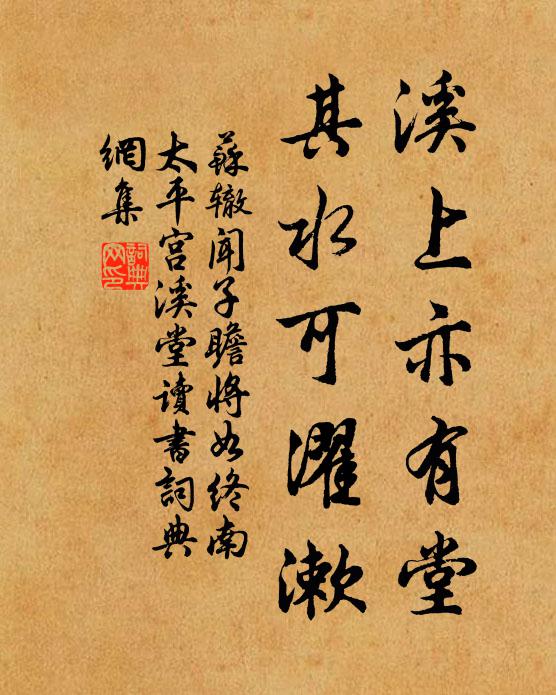 溪上亦有堂
其水可濯漱
蘇辙闻子瞻將如终南
太平宮溪堂讀書詞典
網集
詞典
网印